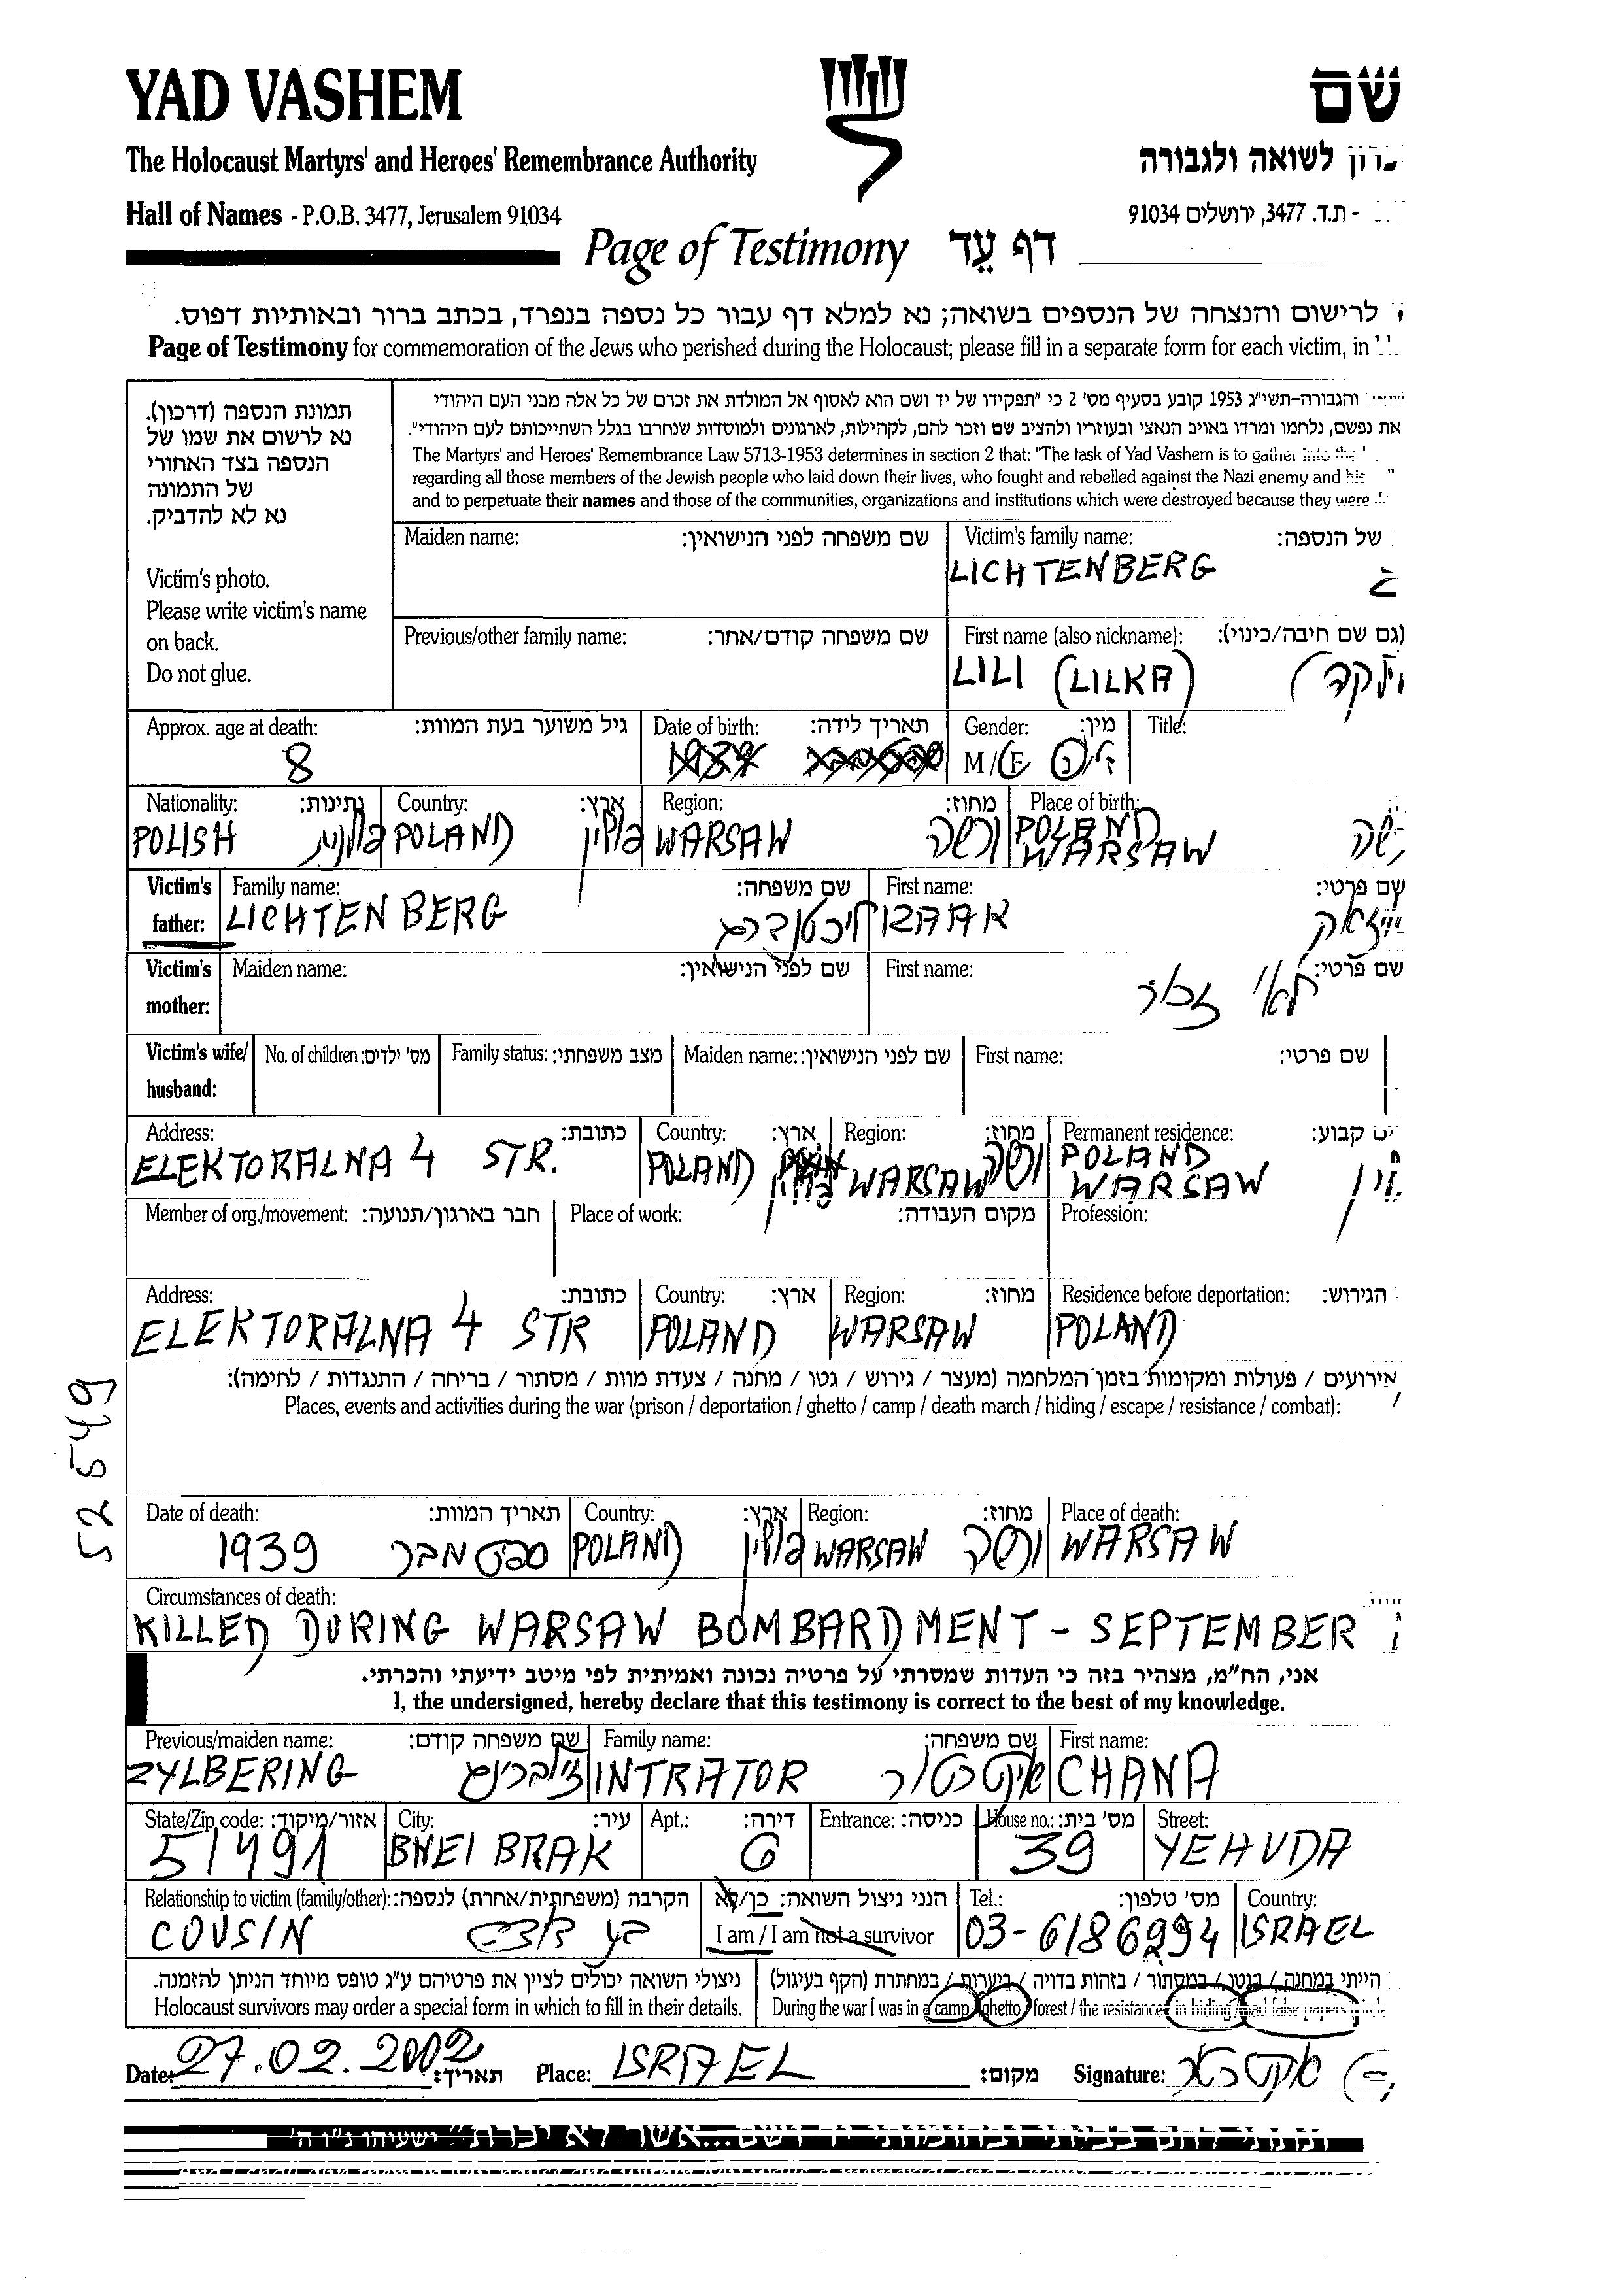 YAD VASHEM
שם
The Holocaust Martyrs' and Heroes' Remembrance Authority
לשואה ולגבורה
Hall of Names - P.O.B. 3477, Jerusalem 91034
- ת.ד. 3477, ירושלים 91034
Page of Testimony דף עֵד
לרישום והנצחה של הנספים בשואה; נא למלא דף עבור כל נספה בנפרד, בכתב ברור ובאותיות דפוס.
Page of Testimony for commemoration of the Jews who perished during the Holocaust; please fill in a separate form for each victim, in
תמונת הנספה (דרכון).
נא לרשום את שמו של
הנספה בצד האחורי
של התמונה
נא לא להדביק.
Victim's photo.
Please write victim's name
on back.
Do not glue.
והגבורה-תשי"ג 1953 קובע בסעיף מס' 2 כי "תפקידו של יד ושם הוא לאסוף אל המולדת את זכרם של כל אלה מבני העם היהודי
את נפשם, נלחמו ומרדו באויב הנאצי ובעוזריו ולהציב שם וזכר להם, לקהילות, לארגונים ולמוסדות שנחרבו בגלל השתייכותם לעם היהודי".
The Martyrs' and Heroes' Remembrance Law 5713-1953 determines in section 2 that: "The task of Yad Vashem is to gather into the
regarding all those members of the Jewish people who laid down their lives, who fought and rebelled against the Nazi enemy and his
and to perpetuate their names and those of the communities, organizations and institutions which were destroyed because they were
Maiden name: שם משפחה לפני הנישואין: Victim's family name: של הנספה:
LICHTENBERG
Previous/other family name: שם משפחה קודם/אחר: First name (also nickname): (גם שם חיבה/כינוי):
LILI (LILKA)
Approx. age at death: גיל משוער בעת המוות: Date of birth: תאריך לידה: Gender: מין: Title:
8 1934 M/F
Nationality: נתינות: Country: ארץ: Region: מחוז: Place of birth:
POLISH פולנית POLAND פולין WARSAW ורשה POLAND
WARSAW
Victim's father: Family name: שם משפחה: First name: שם פרטי:
LICHTENBERG ליכטנברג IZAAK
Victim's mother: Maiden name: שם לפני הנישואין: First name: שם פרטי:
Victim's wife/ husband: No. of children: מס' ילדים: Family status: מצב משפחתי: Maiden name: שם לפני הנישואין: First name: שם פרטי:
Address: כתובת: Country: ארץ: Region: מחוז: Permanent residence: קבוע:
ELEKTORALNA 4 STR. POLAND פולין WARSAW ורשה POLAND
WARSAW
Member of org./movement: חבר בארגון/תנועה: Place of work: מקום העבודה: Profession:
Address: כתובת: Country: ארץ: Region: מחוז: Residence before deportation: הגירוש:
ELEKTORALNA 4 STR POLAND WARSAW POLAND
אירועים / פעולות ומקומות בזמן המלחמה (מעצר / גירוש / גטו / מחנה / צעדת מוות / מסתור / בריחה / התנגדות / לחימה):
Places, events and activities during the war (prison / deportation / ghetto / camp / death march / hiding / escape / resistance / combat):
52549
Date of death: תאריך המוות: Country: ארץ: Region: מחוז: Place of death:
1939 ספטמבר POLAND פולין WARSAW ורשה WARSAW
Circumstances of death:
KILLED DURING WARSAW BOMBARDMENT - SEPTEMBER
אני, הח"מ, מצהיר בזה כי העדות שמסרתי על פרטיה נכונה ואמיתית לפי מיטב ידיעתי והכרתי.
I, the undersigned, hereby declare that this testimony is correct to the best of my knowledge.
Previous/maiden name: שם משפחה קודם: Family name: שם משפחה: First name:
ZYLBERING זילברינג INTRATOR אינטרטור CHANA
State/Zip code: אזור/מיקוד: City: עיר: Apt.: דירה: Entrance: כניסה: House no.: מס' בית: Street:
51491 BNEI BRAK 6 39 YEHUDA
Relationship to victim (family/other): הקרבה (משפחתית/אחרת) לנספה: הנני ניצול השואה: כן/לא Tel.: מס' טלפון: Country:
COUSIN בן דוד I am / I am not a survivor 03-6186994 ISRAEL
ניצולי השואה יכולים לציין את פרטיהם ע"ג טופס מיוחד הניתן להזמנה.
Holocaust survivors may order a special form in which to fill in their details.
הייתי במחנה / בגטו / במסתור / בזהות בדויה / ביערות / במחתרת (הקף בעיגול)
During the war I was in a camp / ghetto / forest / the resistance / in hiding / had false papers
Date: 27.02.2002 תאריך: Place: ISRAEL מקום: Signature:
ונתתי להם בביתי ובחומותי יד ושם...אשר לא יכרת" ישעיהו נ"ו ה'